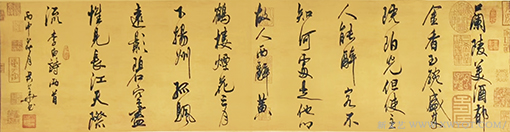 蘭陵美酒郁
金香玉碗盛
琥珀光但使主
人能醉客不
知何處是他鄉
故人西辭黃
鶴樓煙花三月
下揚州孤帆
遠影碧空盡
惟見長江天際
流 李白詩兩首
丙申